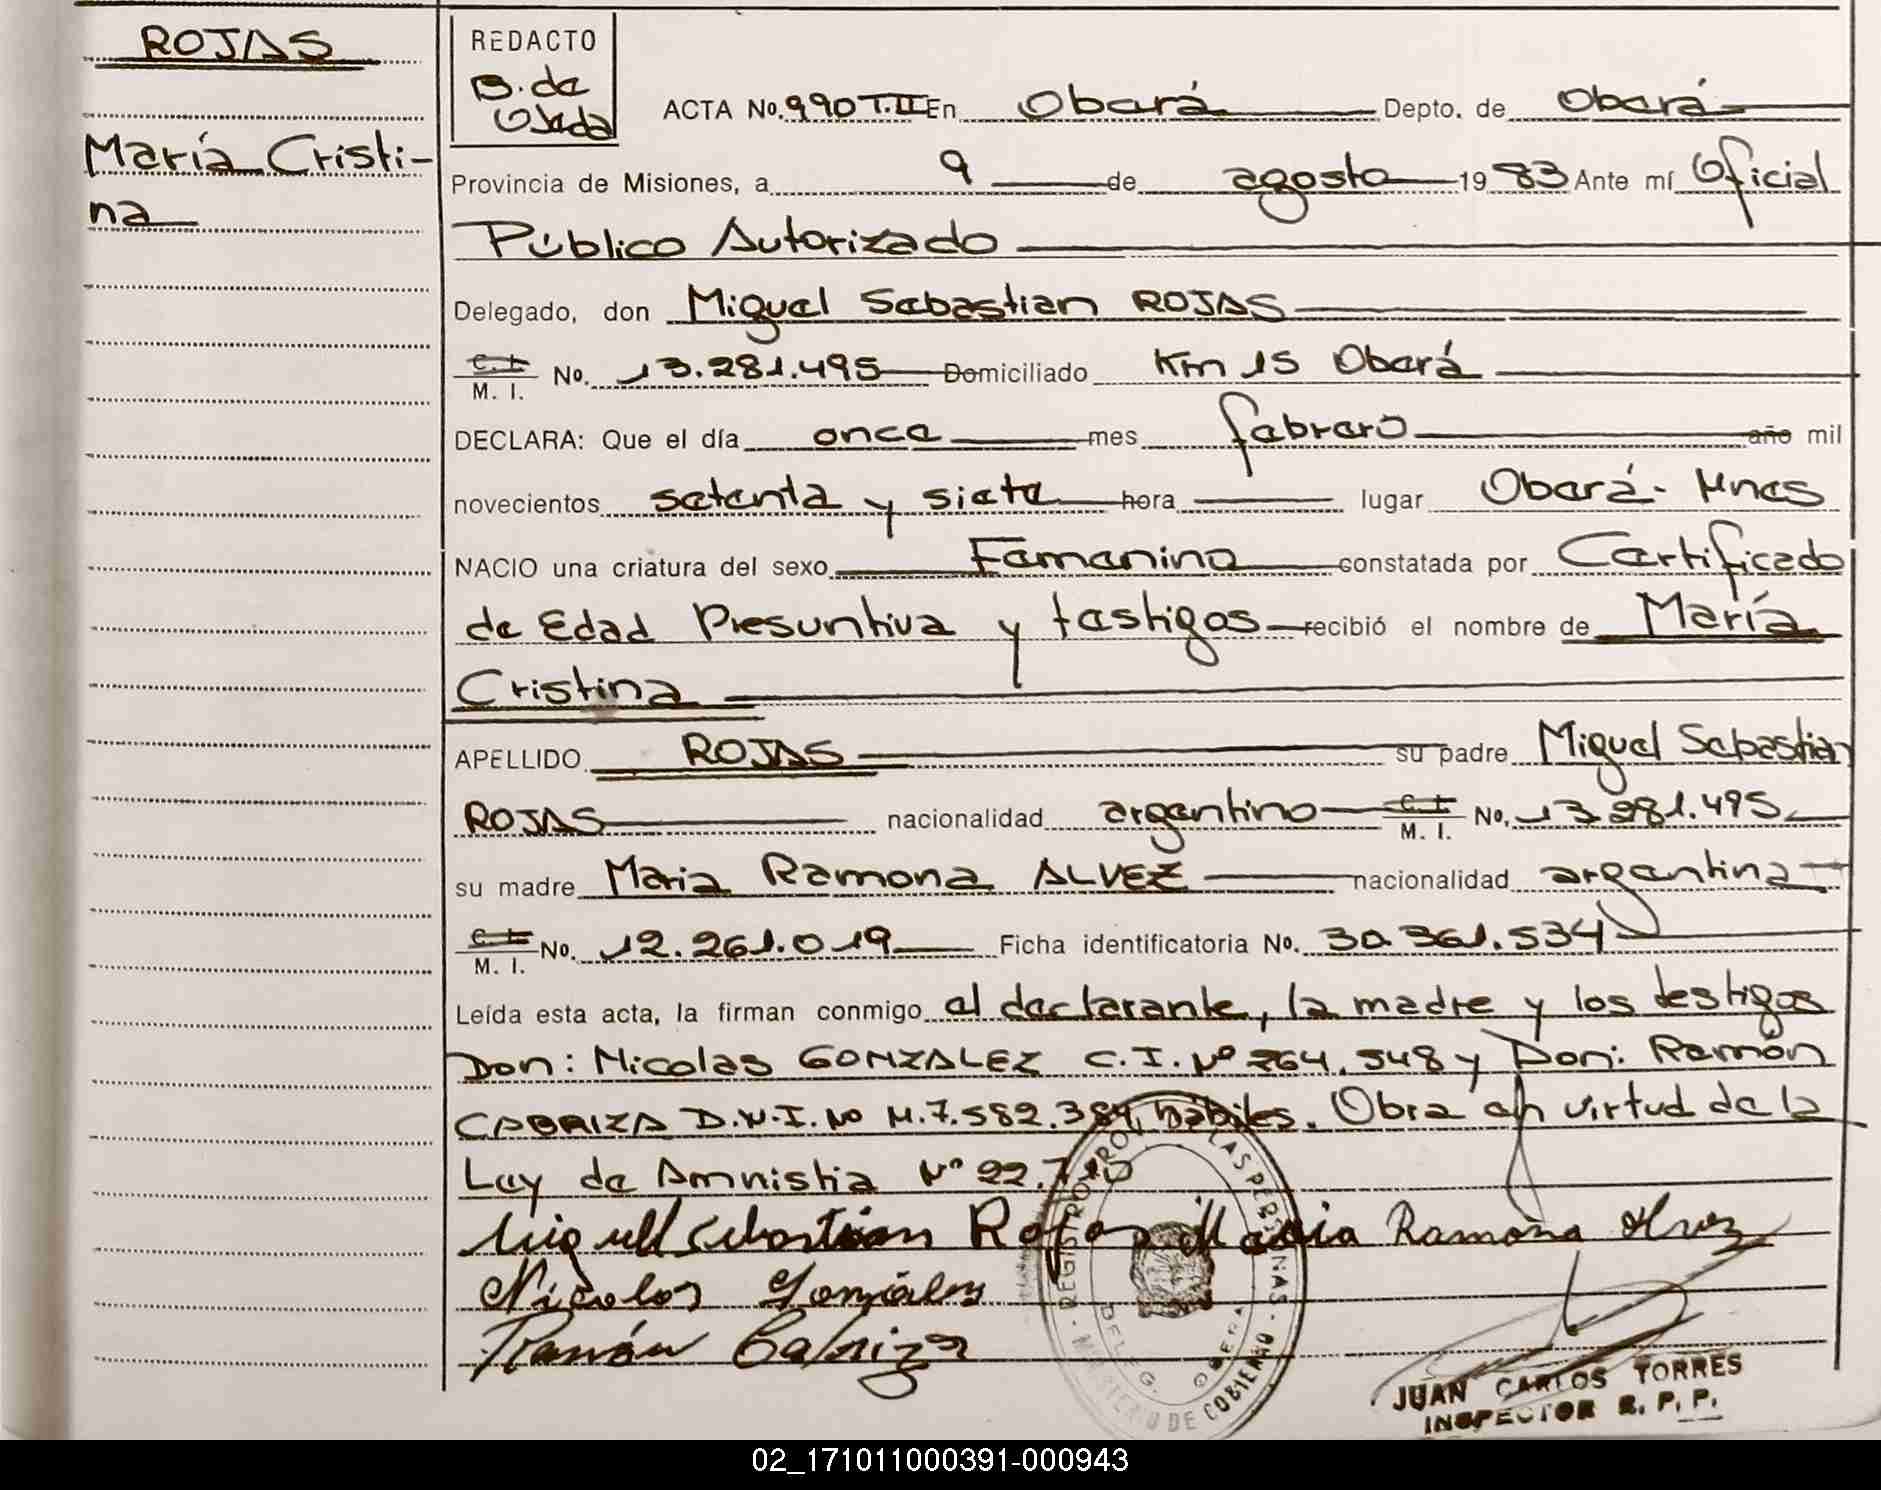 ROJAS
María Cristi-
na
REDACTO
B. de
Ojeda
ACTA No. 990 T.II En Oberá Depto. de Oberá
Provincia de Misiones, a 9 de agosto 1983 Ante mí Oficial
Público Autorizado
Delegado, don Miguel Sebastian ROJAS
C. I.
M. I. No. 13.281.495 Domiciliado Km 15 Oberá
DECLARA: Que el día once mes febrero año mil
novecientos setenta y siete hora lugar Oberá - Mnes
NACIO una criatura del sexo Femenino constatada por Certificado
de Edad Presuntiva y testigos recibió el nombre de María
Cristina
APELLIDO ROJAS su padre Miguel Sebastian
ROJAS nacionalidad argentino C. I. M. I. No. 13.281.495
su madre Maria Ramona ALVEZ nacionalidad argentina
C. I.
M. I. No. 12.261.019 Ficha identificatoria No. 30.361.534
Leída esta acta, la firman conmigo el declarante, la madre y los testigos
Don: Nicolas GONZALEZ C.I. Nº 264.548 y Don: Ramón
CABRIZA D.N.I. Nº M.7.582.384, hábiles. Obra en virtud de la
Ley de Amnistia Nº 22.710
Miguel Sebastian Rojas Maria Ramona Alvez
Nicolas Gonzáles
Ramón Cabriza
REGISTRO PROV. LAS PERSONAS - MINISTERIO DE GOBIERNO
DELEG. OBERA
JUAN CARLOS TORRES
INSPECTOR R. P. P.
02_171011000391-000943